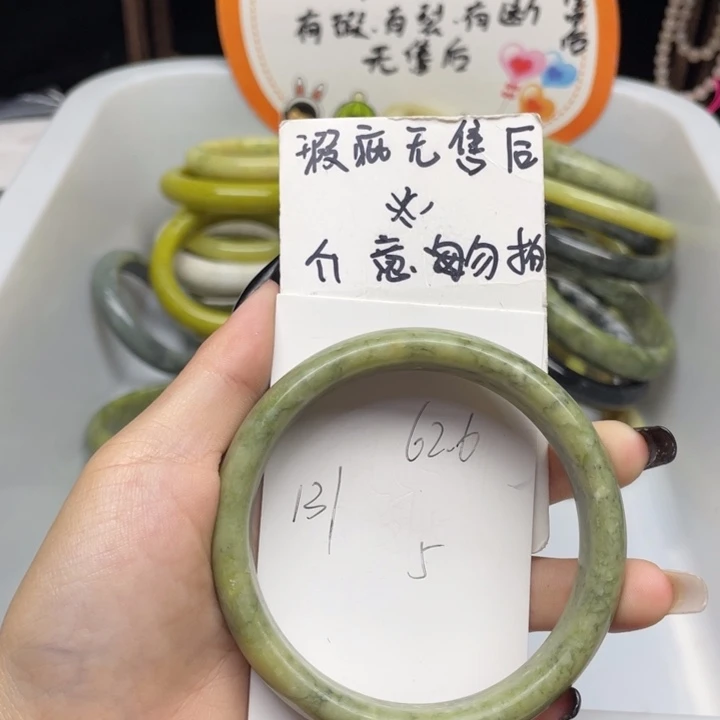 有瑕.有裂.有断
无售后
瑕疵无售后
介意勿拍
62.6
131
5